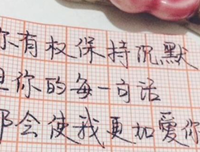 你有权保持沉默
但你的每一句话
都会使我更加爱你